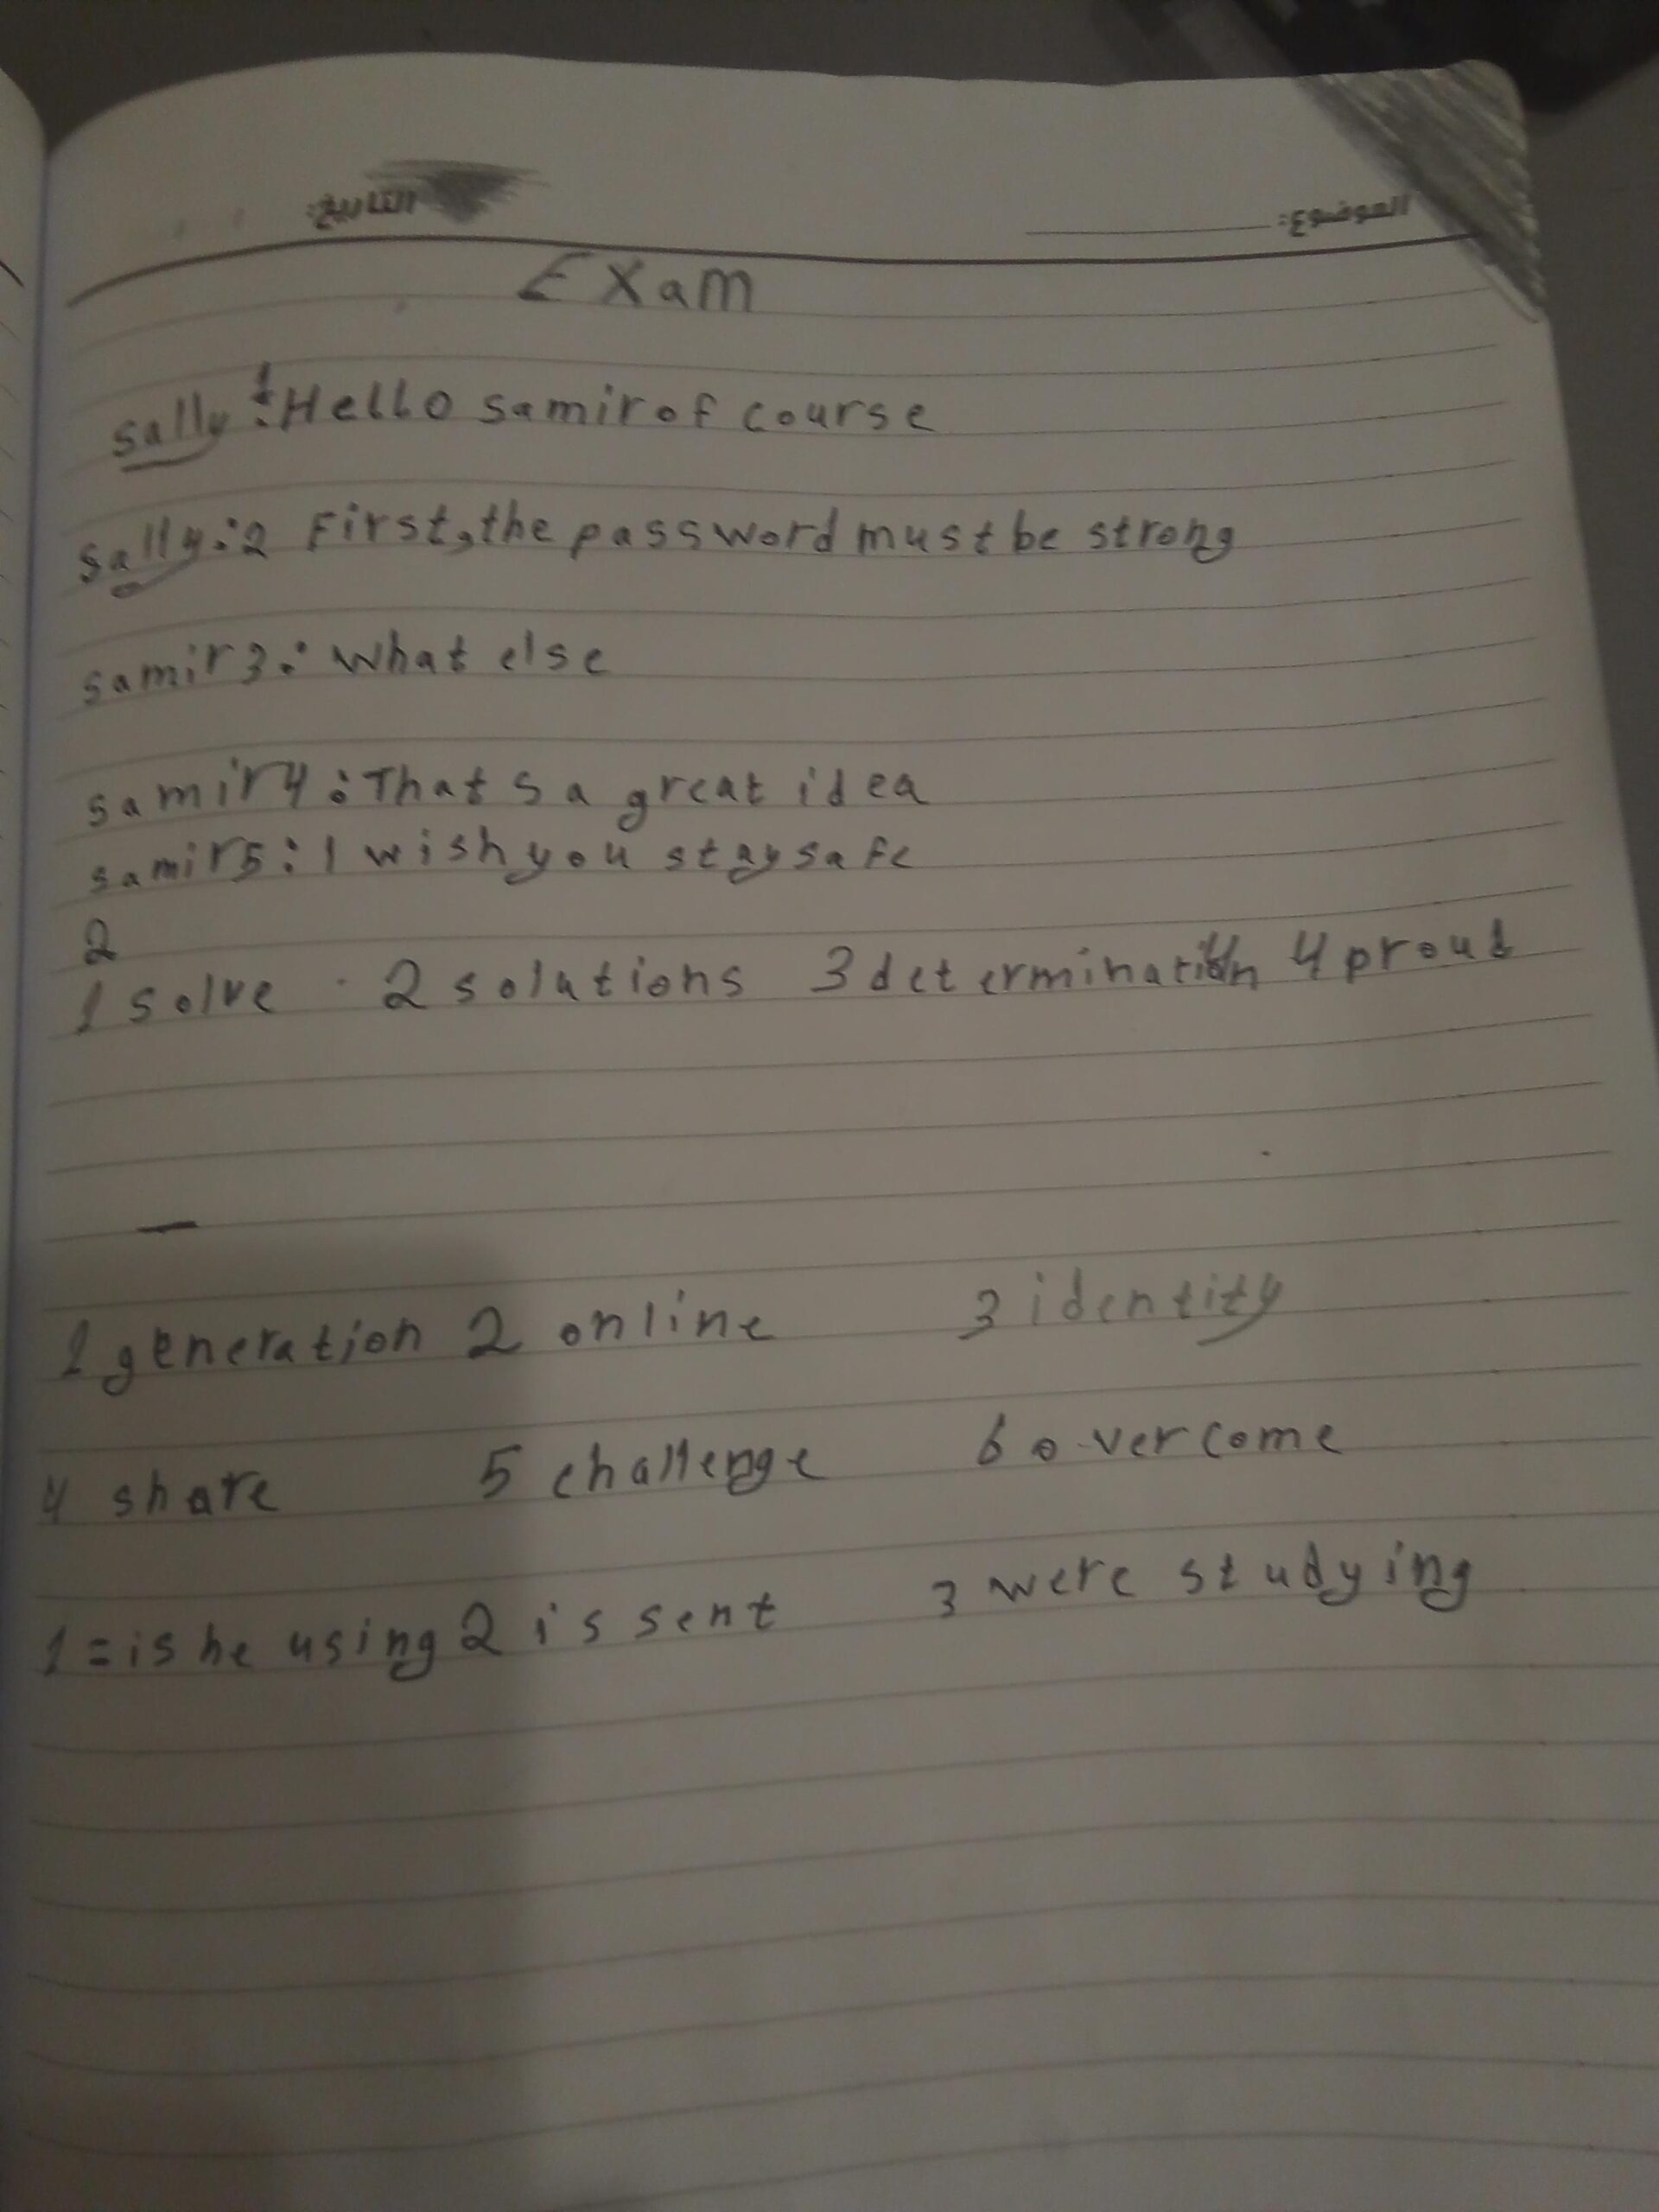 الموضوع: التاريخ:
Exam
sally 1: Hello samir of course
sally:2 First, the password must be strong
samir3: What else
samir4: That s a great idea
samir5: I wish you stay safe
2
1 solve 2 solutions 3 determination 4 proud
1 generation 2 online 3 identity
4 share 5 challenge 6 overcome
1=is he using 2 is sent 3 were studying